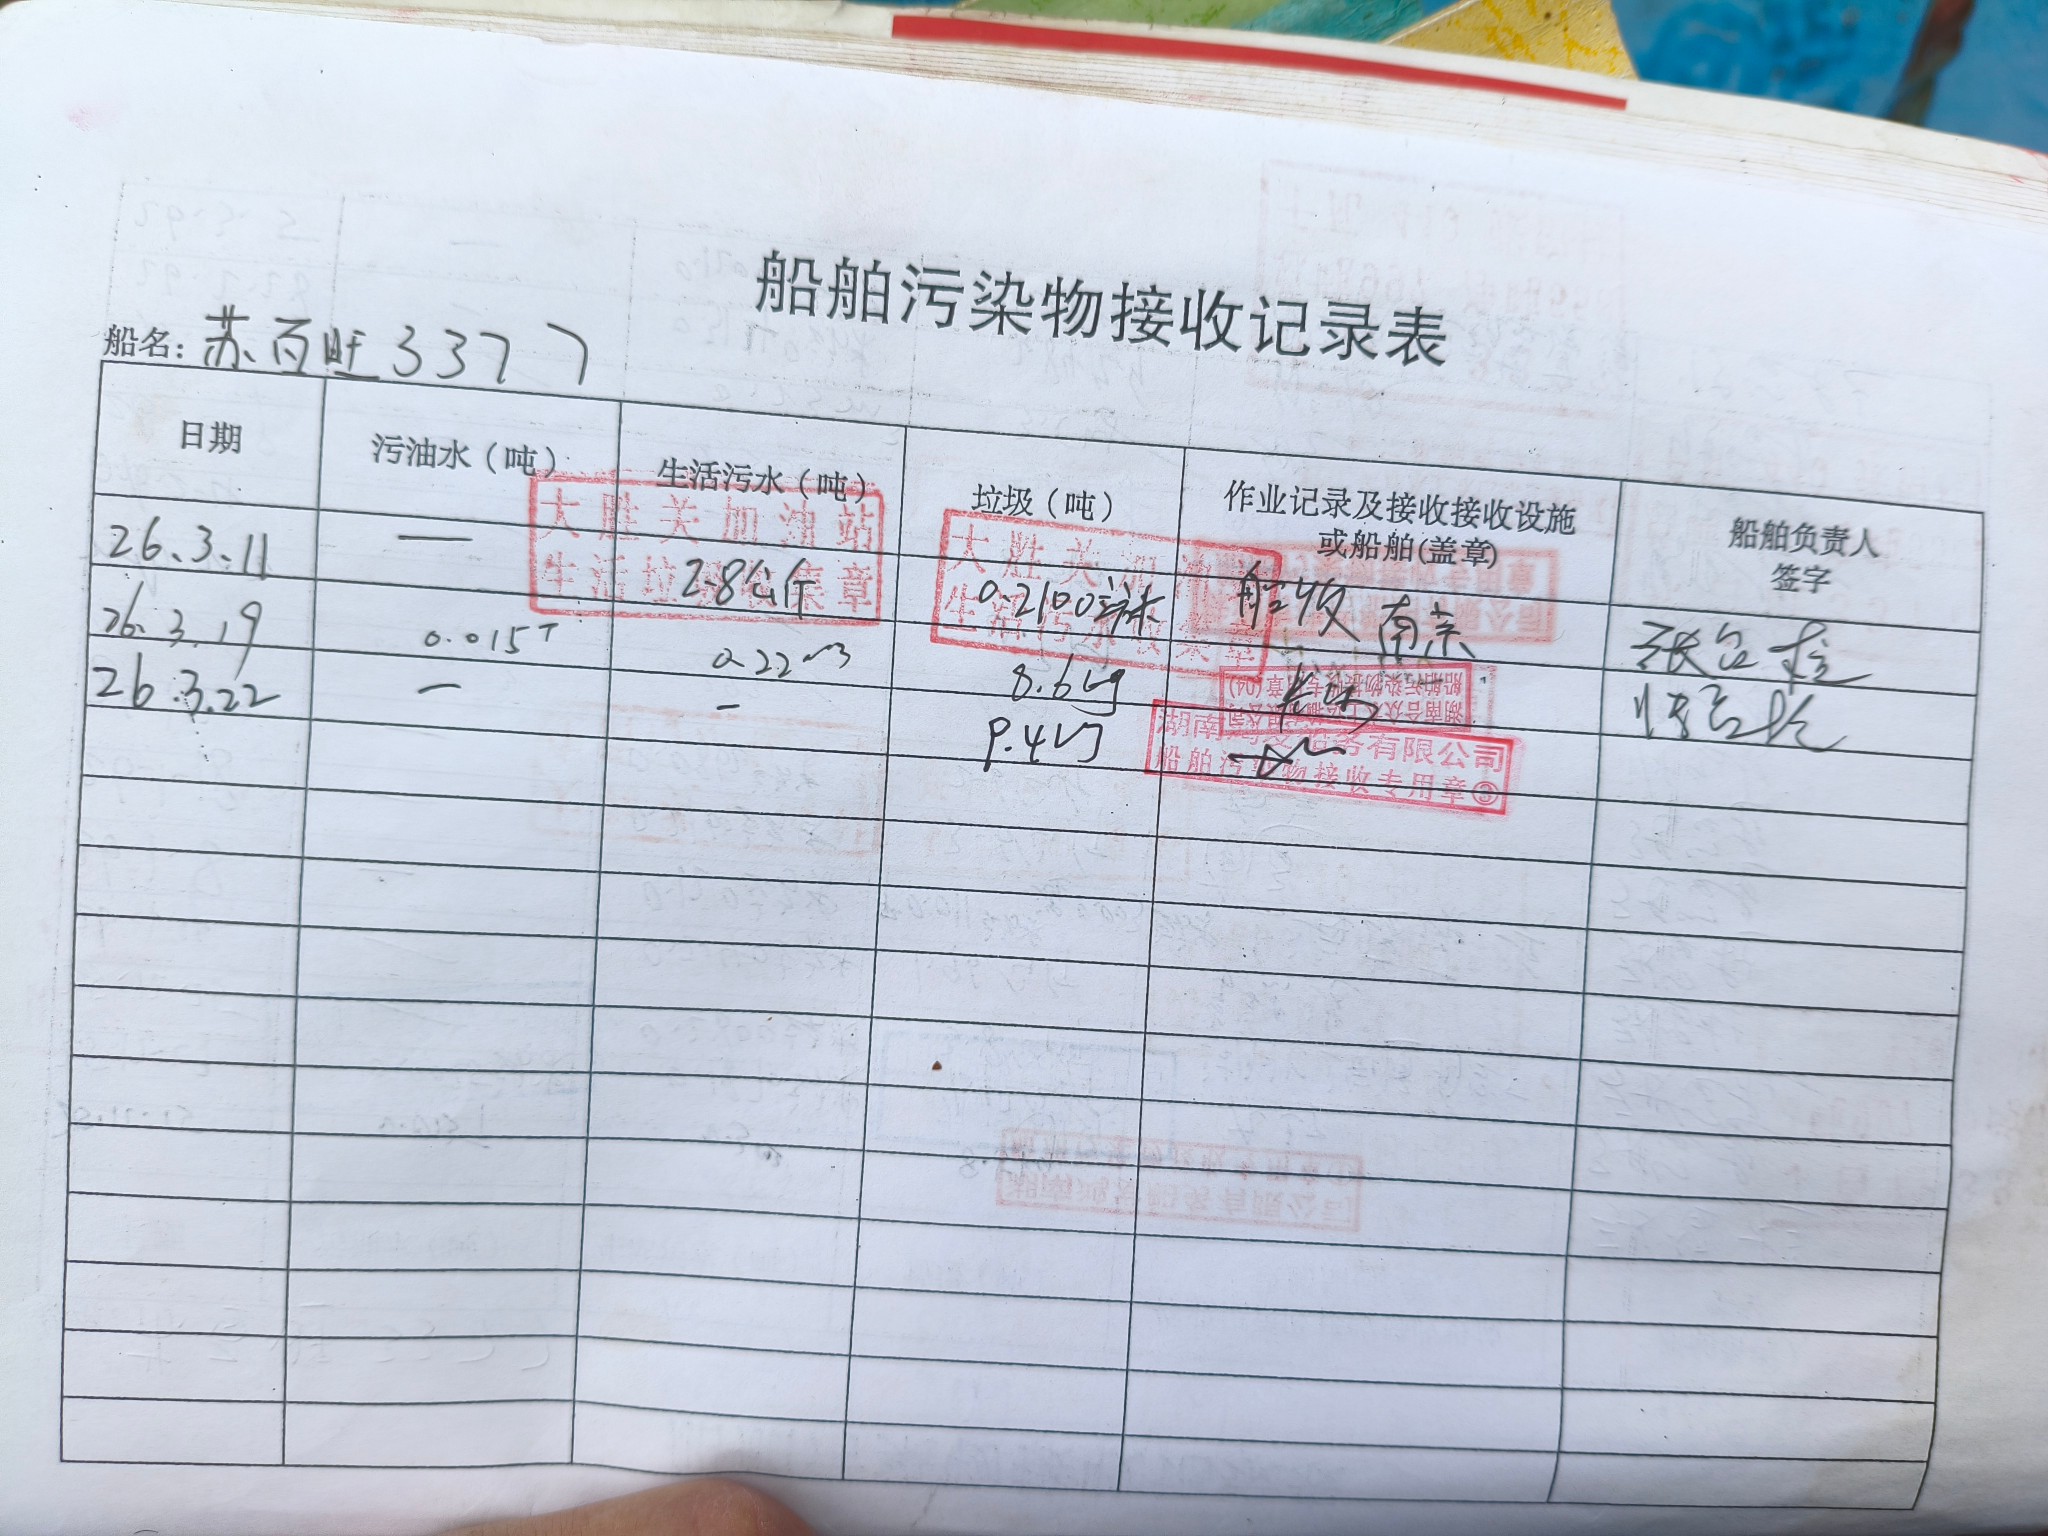 船舶污染物接收记录表
船名：苏百旺3377
日期 污油水（吨） 生活污水（吨） 垃圾（吨） 作业记录及接收接收设施或船舶(盖章) 船舶负责人签字
大胜关加油站
生活垃圾收集章
大胜关加油
生活污水收集章
26.3.11 — 2.8公斤 0.2100 船收 南京
26.3.19 0.015T 0.22m3 8.6
26.3.22 — — 9.4
湖南 船务有限公司
船舶污染物接收专用章③